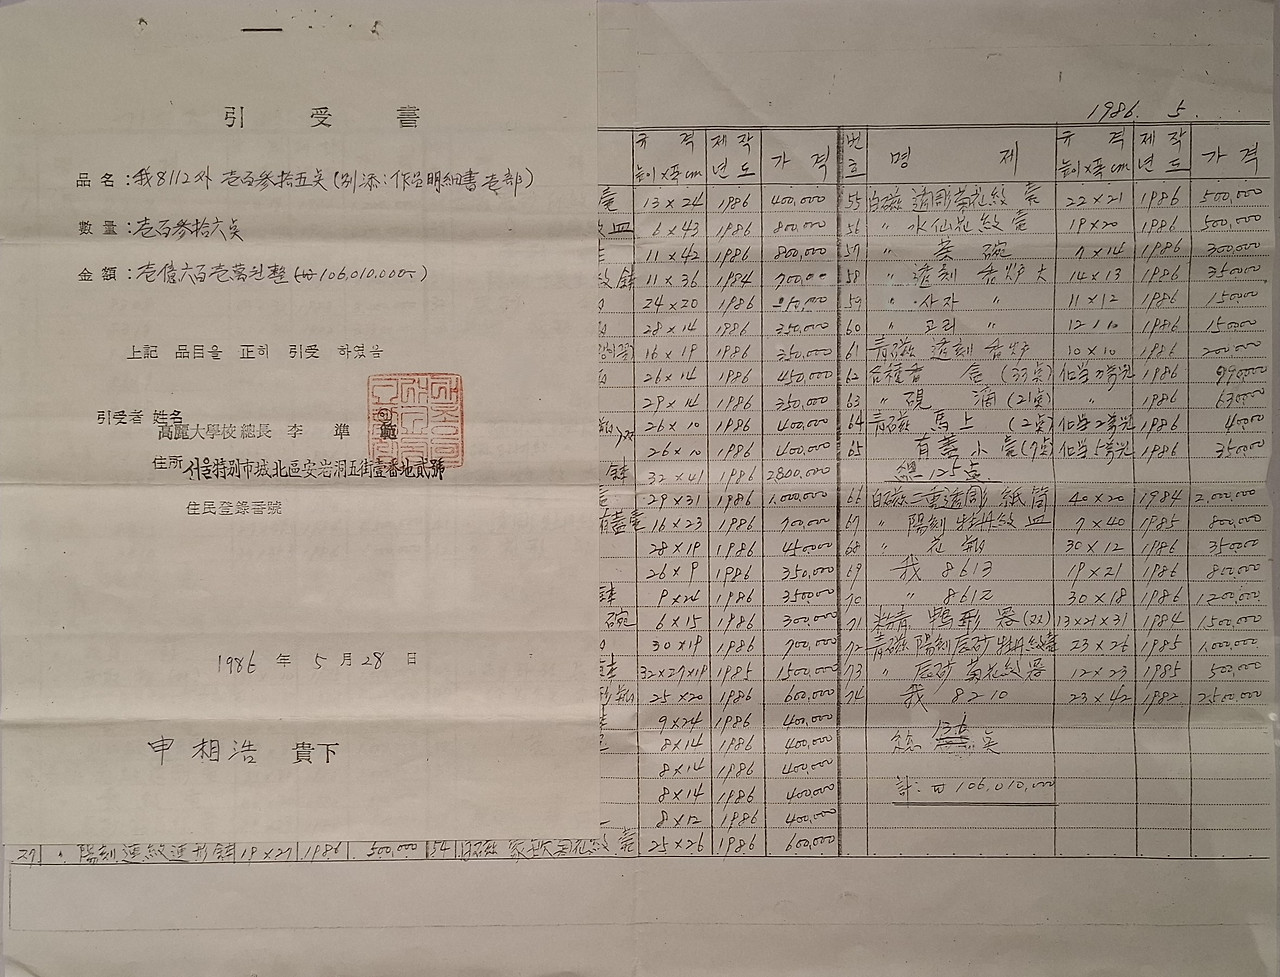 引 受 書
品 名 : 我8112外 壱百參拾五点 (別添 : 作品明細書 壱部)
數 量 : 壱百參拾六点
金 額 : 壱億六百壱萬원整 (₩106,010,000-)
上記 品目을 正히 引受 하였음
引受者 姓名
高麗大學校總長 李 準 範
住所 서울特別市城北區安岩洞五街壹番地貳號
住民登錄番號
1986 年 5 月 28 日
申 相 浩 貴下
1986. 5.
규 격 제 작 가 격 번 명 제 규 격 제 작 가 격
높이×폭 cm 년 도 호 높이×폭 cm 년 도
壺 13×24 1986 400,000 55 白磁 透彫菊花紋 壺 22×21 1986 500,000
紋皿 6×43 1986 800,000 56 〃 水仙花紋 壺 19×20 1986 500,000
11×42 1986 800,000 57 〃 茶 碗 7×14 1986 300,000
紋鉢 11×36 1984 700,000 58 〃 透刻 香炉 大 14×13 1986 350,000
24×20 1986 59 〃 사자 〃 11×12 1986 150,000
28×14 1986 350,000 60 〃 고리 〃 12×10 1986 150,000
16×19 1986 350,000 61 青磁 透刻 香炉 10×10 1986 200,000
26×14 1986 450,000 62 各種香 盒 (33点) 1986 990,000
29×14 1986 350,000 63 〃 硯 滴 (21点) 〃 1986 630,000
26×10 1986 400,000 64 青磁 馬上 (2点) 1986 40,000
26×10 1986 400,000 65 有蓋小壺 (7点) 1986 350,000
鉢 32×41 1986 2,800,000 總 125点
29×31 1986 1,000,000 66 白磁二重透彫 紙筒 40×20 1984 2,000,000
有蓋壺 16×23 1986 700,000 67 〃 陽刻 牡丹紋 皿 7×40 1985 800,000
28×19 1986 450,000 68 〃 花 瓶 30×12 1986 350,000
26×9 1986 350,000 69 我 8613 19×21 1986 800,000
9×24 1986 350,000 70 〃 8612 30×18 1986 1,200,000
碗 6×15 1986 300,000 71 粉青 鴨形 器 (2点) 13×21×31 1984 1,500,000
30×19 1986 700,000 72 青磁 陽刻辰砂 牡丹紋壺 23×26 1985 1,000,000
32×27×19 1985 1,500,000 73 〃 辰砂 菊花紋器 12×23 1985 500,000
25×20 1986 600,000 74 我 8210 23×42 1982 2,500,000
9×24 1986 400,000
8×14 1986 400,000 総 136 点
8×14 1986 400,000
8×14 1986 400,000 計: ₩ 106,010,000
8×12 1986 400,000
27 〃 陽刻 蓮紋蓮形鉢 19×27 1986 500,000 54 白磁 花紋 壺 25×26 1986 600,000